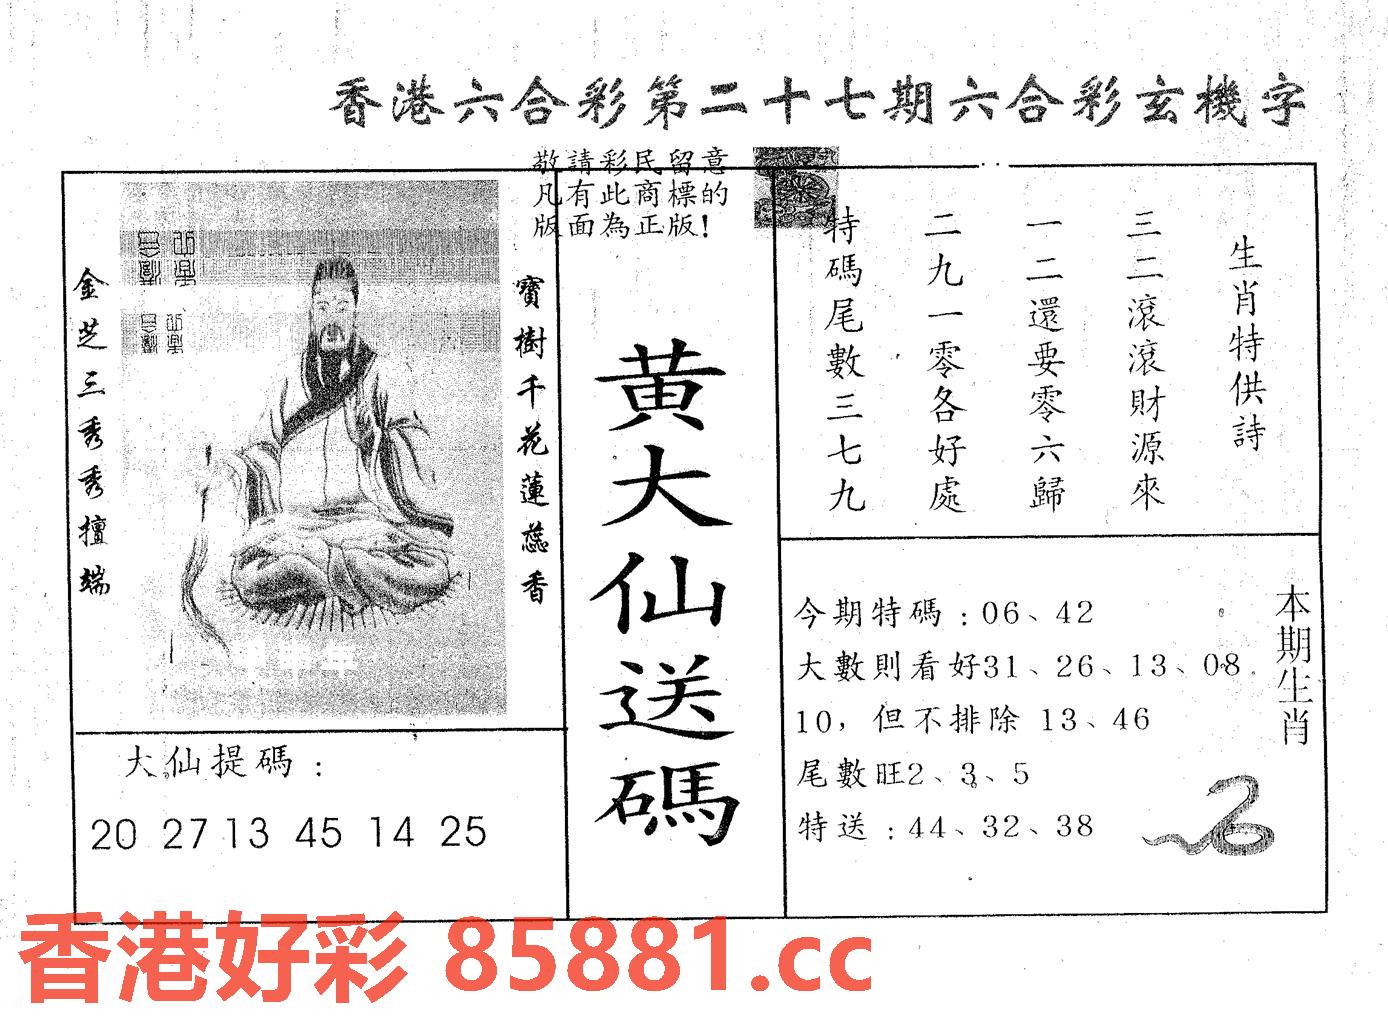 香港六合彩第二十七期六合彩玄機字
敬請彩民留意
凡有此商標的
版面為正版!
生肖特供詩
三二滾滾財源來
一二還要零六歸
二九一零各好處
特碼尾數三七九
黃大仙送碼
寶樹千花蓮蕊香
金芝三秀秀擅端
大仙提碼:
20 27 13 45 14 25
本期生肖
今期特碼:06、42
大數則看好31、26、13、08
10,但不排除 13、46
尾數旺2、3、5
特送:44、32、38
香港好彩 85881.cc